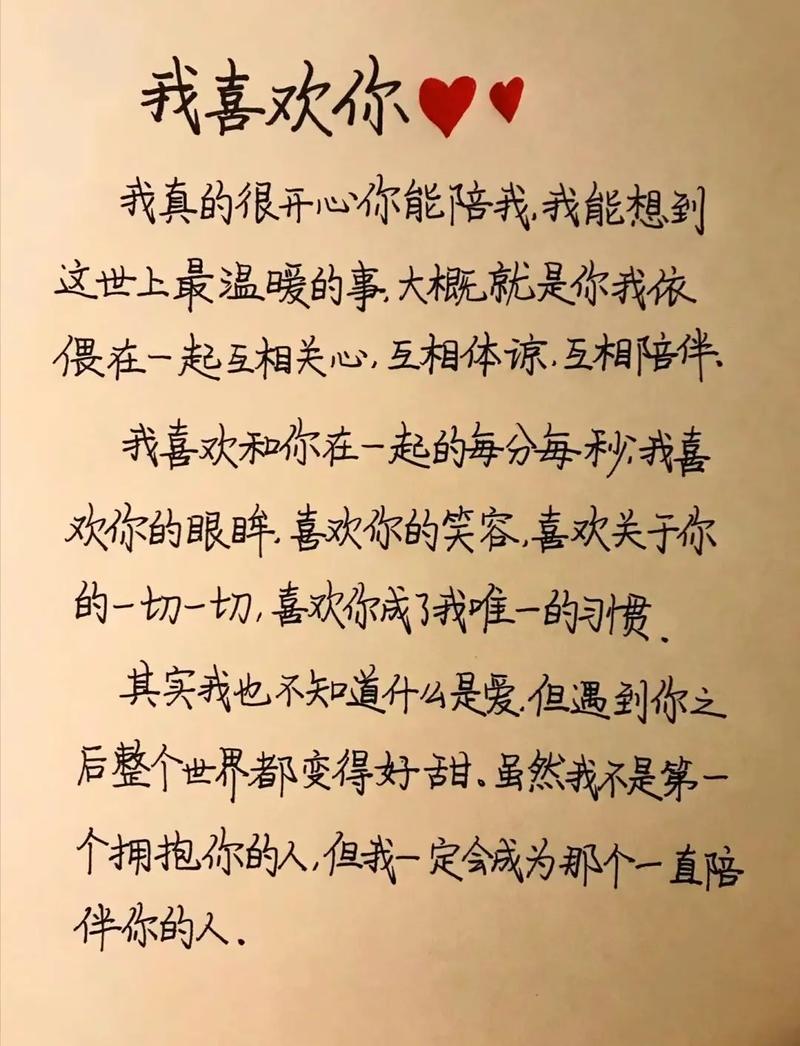 我喜欢你
我真的很开心你能陪我,我能想到
这世上最温暖的事,大概就是你我依
偎在一起互相关心,互相体谅,互相陪伴、
我喜欢和你在一起的每分每秒,我喜
欢你的眼眸,喜欢你的笑容,喜欢关于你
的一切一切,喜欢你成了我唯一的习惯.
其实我也不知道什么是爱,但遇到你之
后整个世界都变得好甜。虽然我不是第一
个拥抱你的人,但我一定会成为那个一直陪
伴你的人.